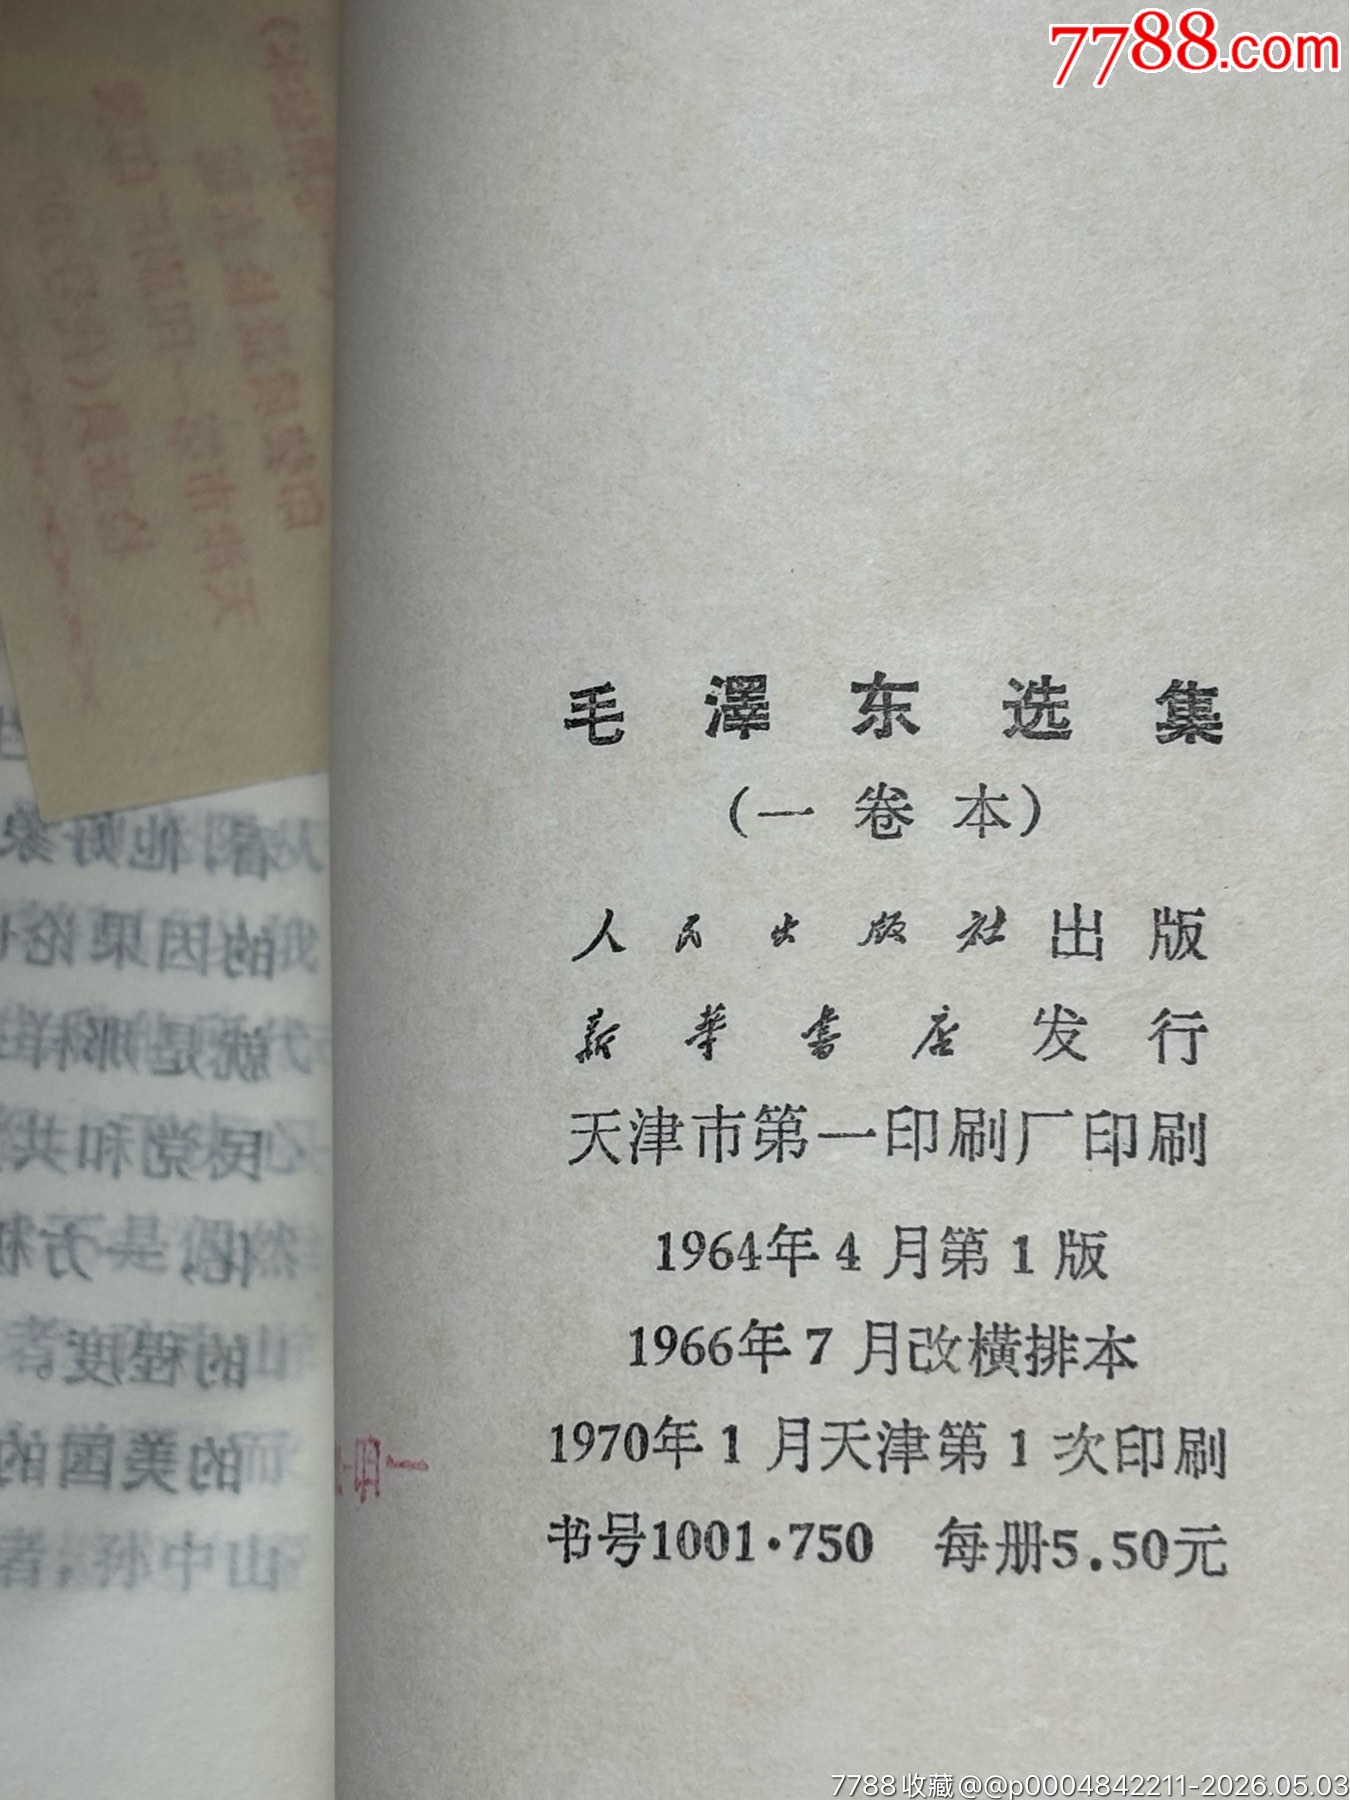 7788.com
毛澤东选集
(一卷本)
人民出版社出版
新华书店发行
天津市第一印刷厂印刷
1964年4月第1版
1966年7月改横排本
1970年1月天津第1次印刷
书号1001·750 每册5.50元
的因果论
就是那样
民党和共
的程度。
的美国的
者，孙中山
7788收藏@@p0004842211-2026.05.03